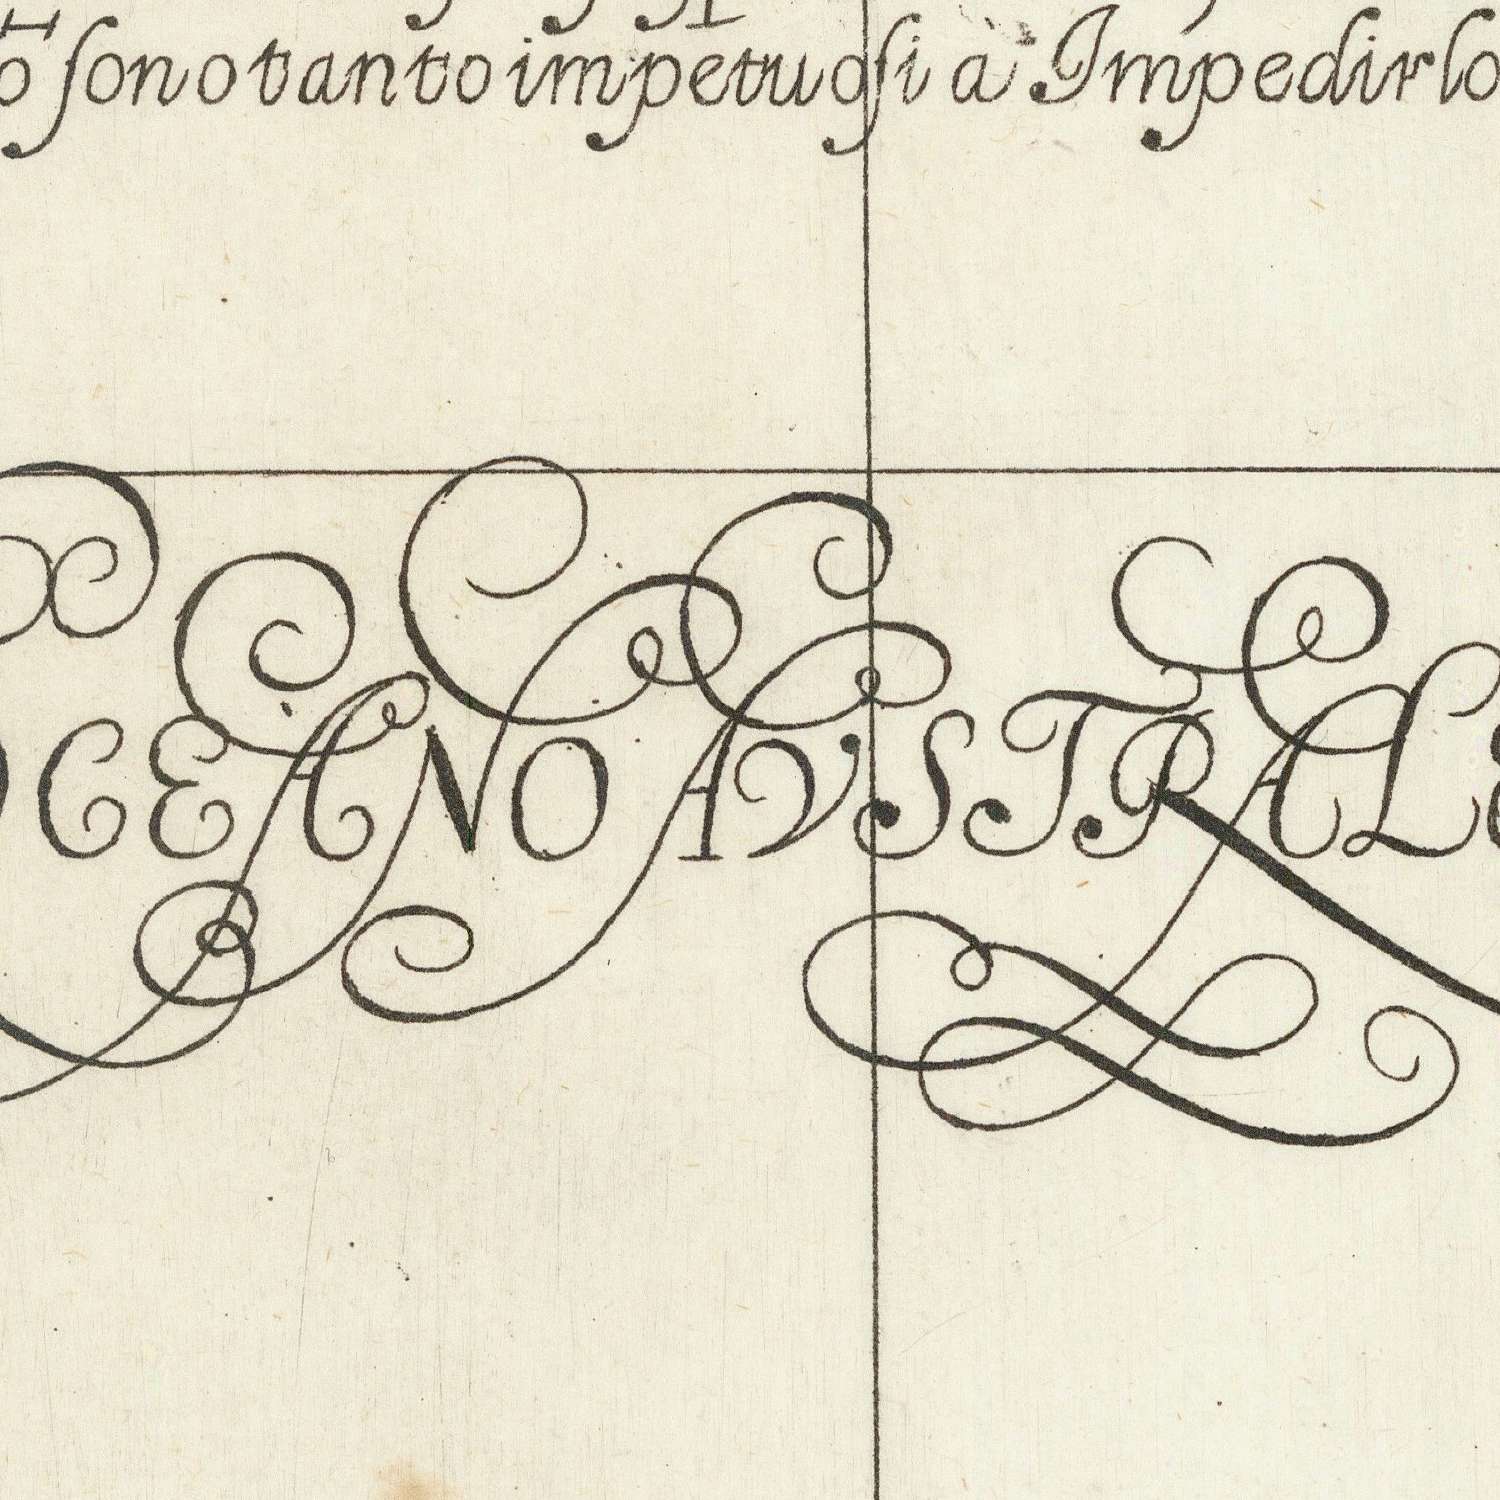 o ſono tanto impetuoſi à Impedirlo
OCEANO AVSTRALE